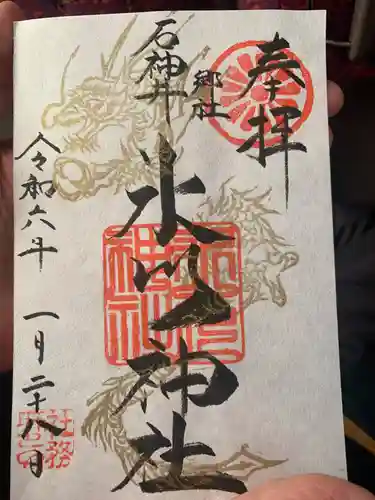 奉拝
石神井
郷社
氷川神社
令和六年
一月二十八日
社務